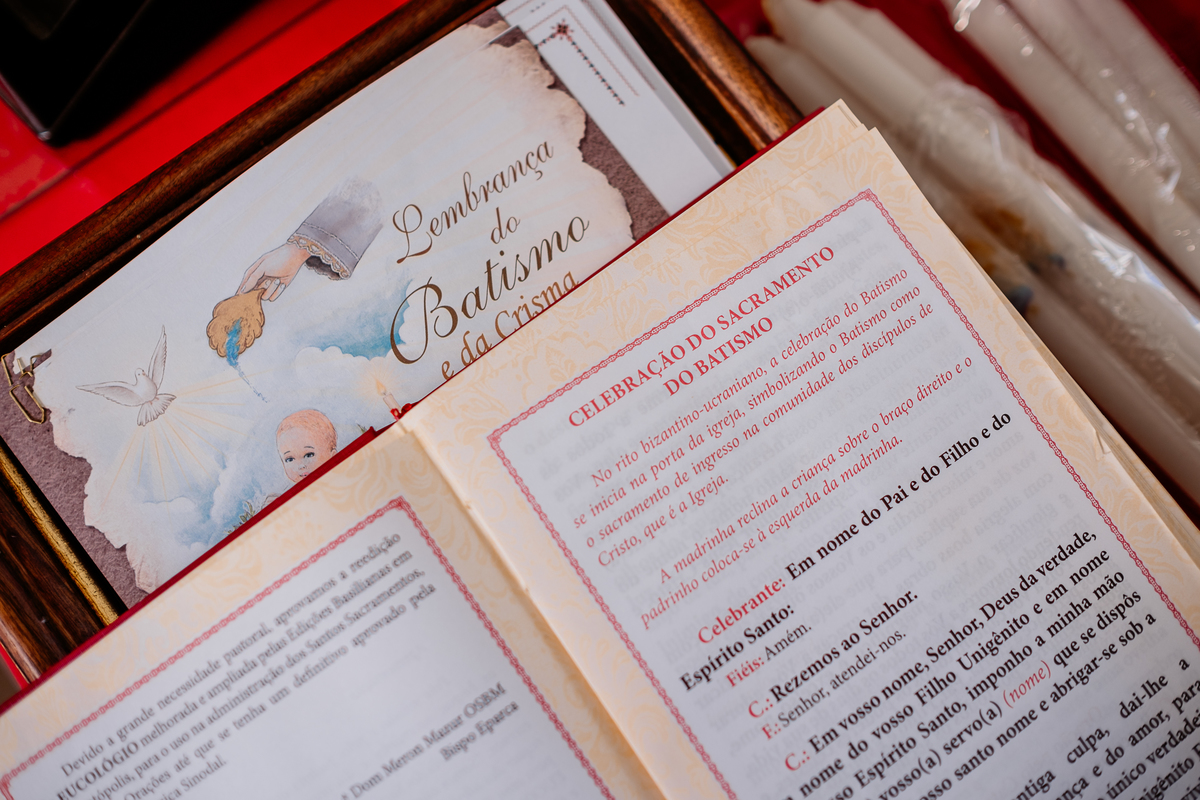 Lembrança
do
Batismo
e da Crisma
Devido a grande necessidade pastoral, aprovamos a reedição
EUCOLÓGIO melhorada e ampliada pelas Edições Basilianas em
para o uso na administração dos Santos Sacramentos,
Orações até que se tenha um definitivo aprovado pela
Sinodal.
Dom Meron Mazur OSBM
Bispo Eparca
CELEBRAÇÃO DO SACRAMENTO
DO BATISMO
No rito bizantino-ucraniano, a celebração do Batismo
se inicia na porta da igreja, simbolizando o Batismo como
o sacramento de ingresso na comunidade dos discípulos de
Cristo, que é a Igreja.
A madrinha reclina a criança sobre o braço direito e o
padrinho coloca-se à esquerda da madrinha.
Celebrante: Em nome do Pai e do Filho e do
Espírito Santo:
Fiéis: Amém.
C.: Rezemos ao Senhor.
F.: Senhor, atendei-nos.
C.: Em vosso nome, Senhor, Deus da verdade,
nome do vosso Filho Unigênito e em nome
Espírito Santo, imponho a minha mão
vosso(a) servo(a) (nome) que se dispôs
santo nome e abrigar-se sob a
culpa, dai-lhe a
e do amor, para
único